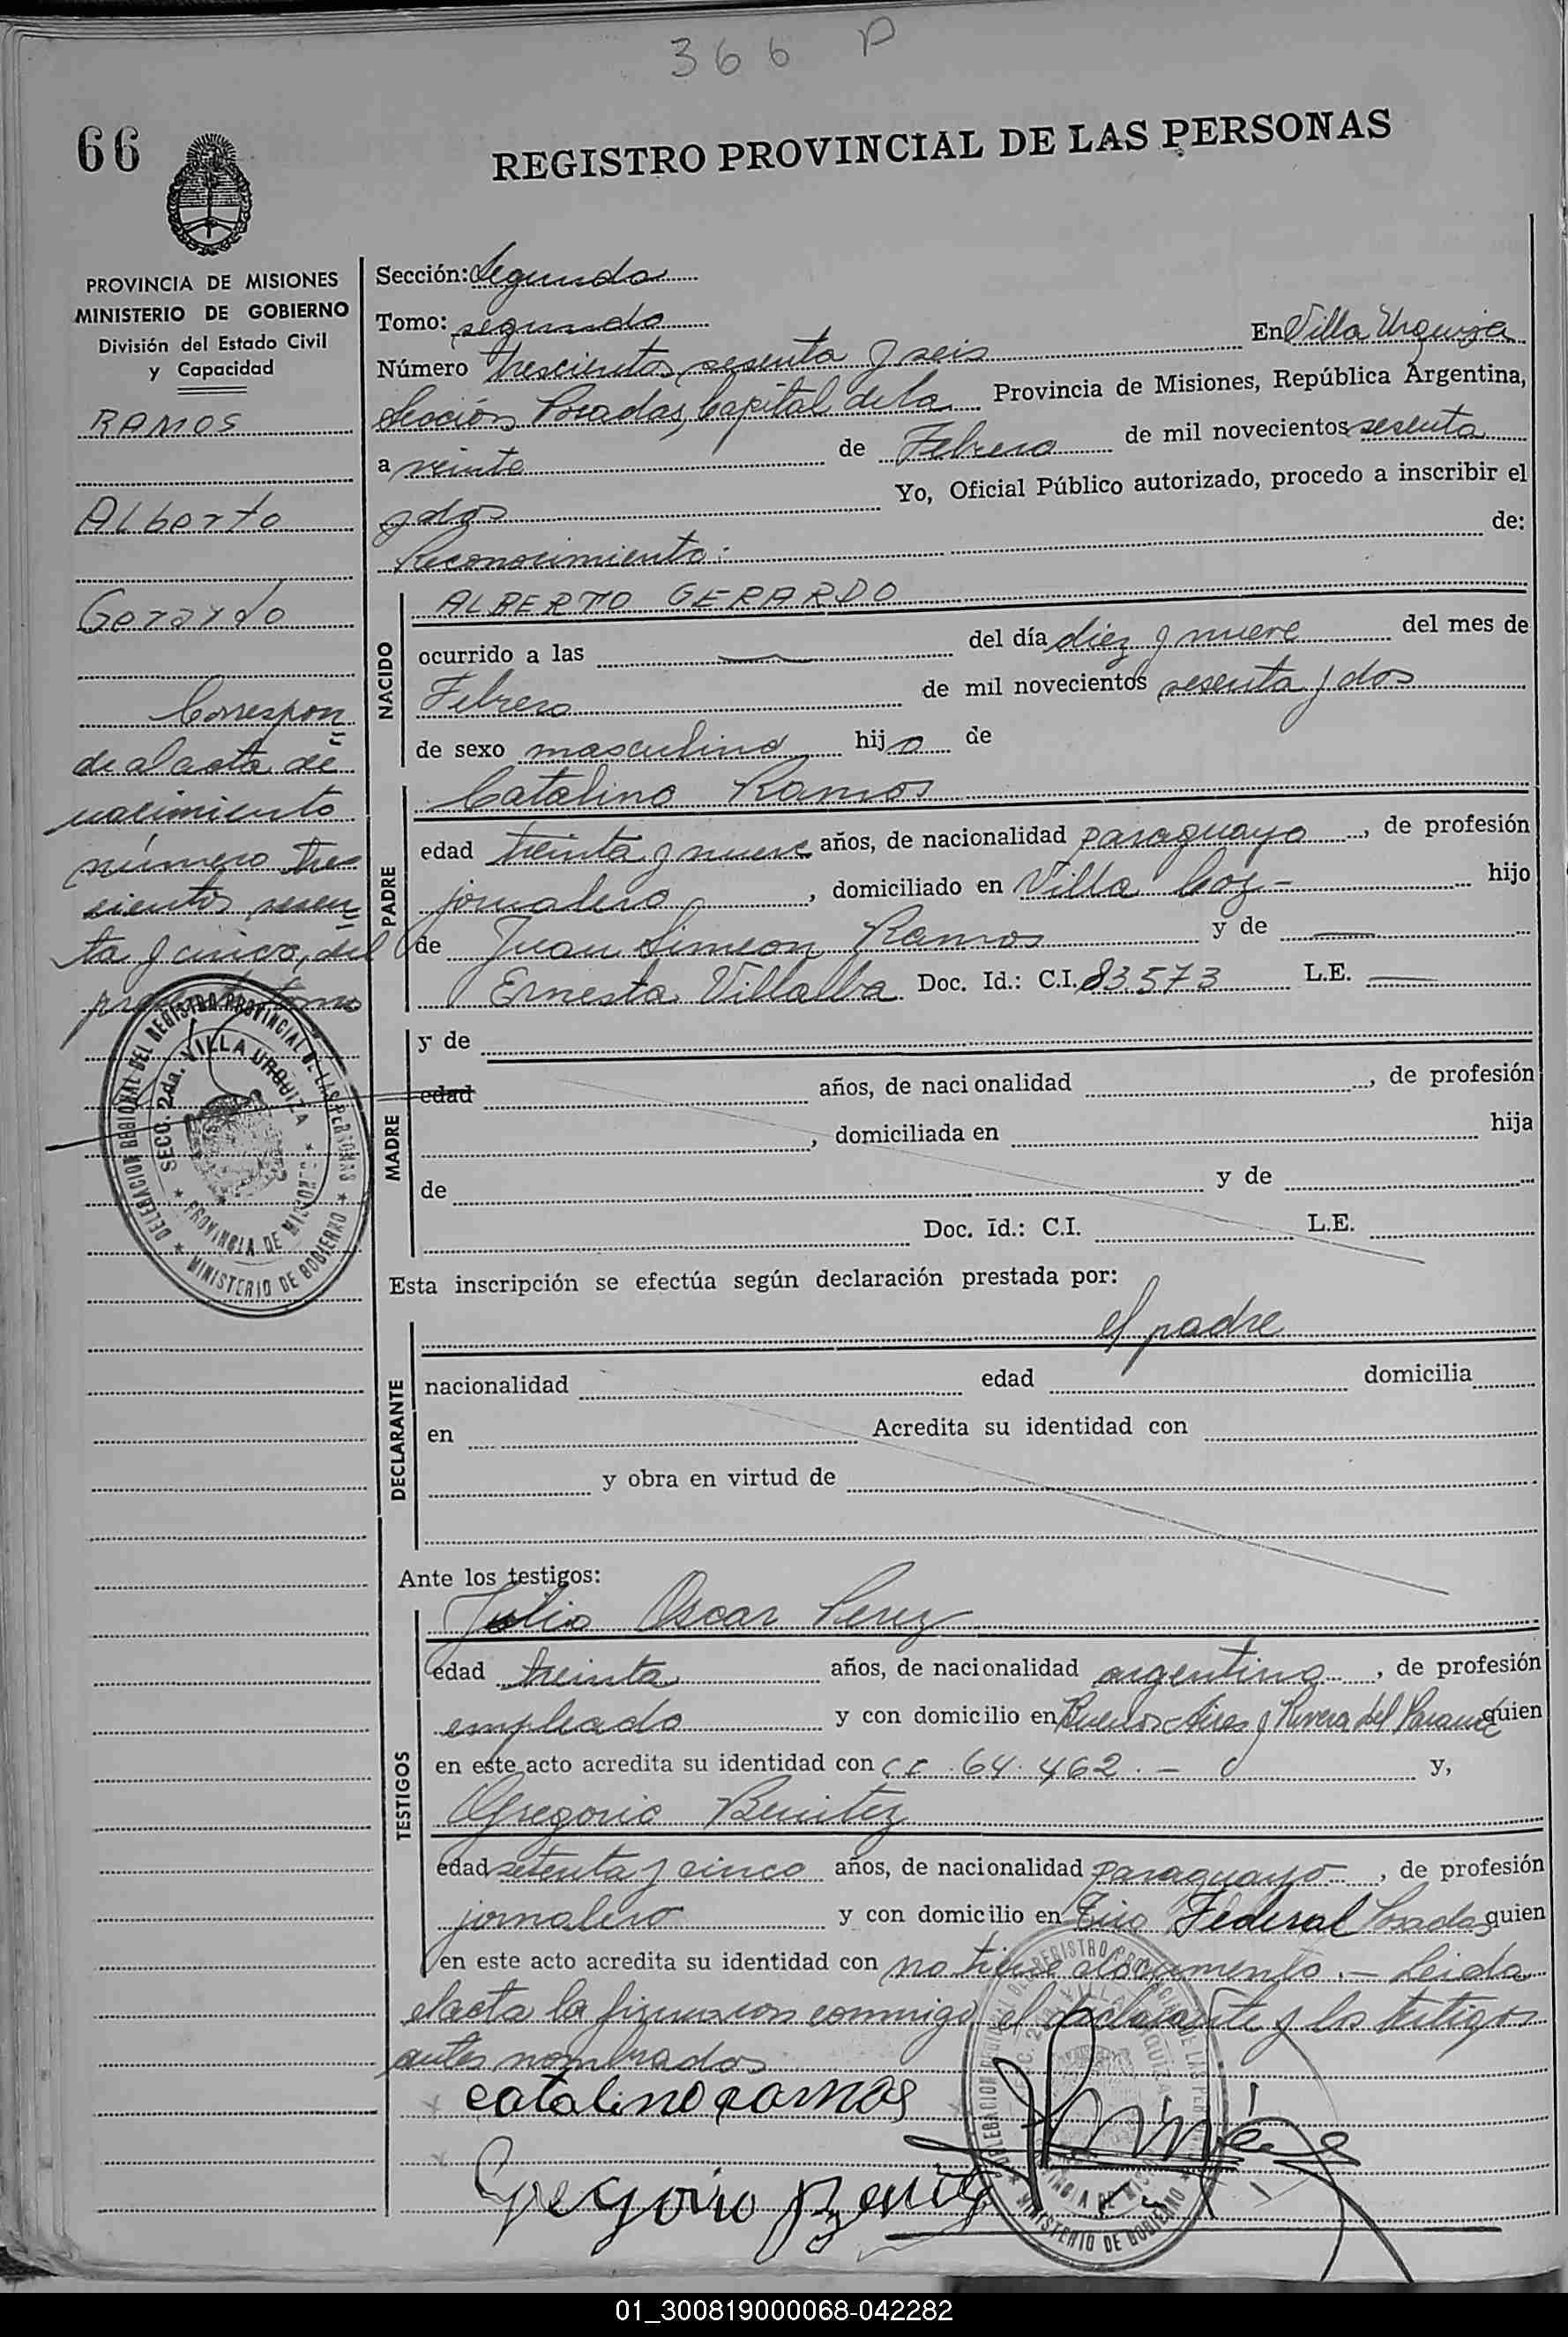 366 P
66
REGISTRO PROVINCIAL DE LAS PERSONAS
PROVINCIA DE MISIONES
MINISTERIO DE GOBIERNO
División del Estado Civil
y Capacidad
RAMOS
Alberto
Gerardo
Correspon
de al acta de
nacimiento
número tres
cientos sesen
ta y cinco, del
presente tomo
DELEGACION REGIONAL DEL REGISTRO PROVINCIAL D. LAS PERSONAS
SECC. 2da. VILLA URQUIZA
PROVINCIA DE MISIONES
MINISTERIO DE GOBIERNO
Sección: Segunda
Tomo: segundo
Número trescientos sesenta y seis En Villa Urquiza
Sección Posadas, Capital de la Provincia de Misiones, República Argentina,
a veinte de Febrero de mil novecientos sesenta
y dos Yo, Oficial Público autorizado, procedo a inscribir el
Reconocimiento: de:
NACIDO
ALBERTO GERARDO
ocurrido a las — del día diez y nueve del mes de
Febrero de mil novecientos sesenta y dos
de sexo masculino hijo de
PADRE
Catalino Ramos
edad treinta y nueve años, de nacionalidad paraguayo, de profesión
jornalero, domiciliado en Villa Coz - hijo
de Juan Simeon Ramos y de —
Ernesta Villalba Doc. Id.: C.I. 83.573 L.E. —
MADRE
y de
edad años, de nacionalidad , de profesión
, domiciliada en hija
de y de
Doc. Id.: C.I. L.E.
Esta inscripción se efectúa según declaración prestada por:
DECLARANTE
el padre
nacionalidad edad domicilia
en Acredita su identidad con
y obra en virtud de
Ante los testigos:
TESTIGOS
Julio Oscar Perez
edad treinta años, de nacionalidad argentino, de profesión
empleado y con domicilio en Buenos Aires y Rivera del Paraná quien
en este acto acredita su identidad con 64.462.- y,
Gregorio Benitez
edad setenta y cinco años, de nacionalidad paraguayo, de profesión
jornalero y con domicilio en Tiro Federal Posadas quien
en este acto acredita su identidad con no tiene documento.- Leida
el acta la firmaron conmigo el declarante y los testigos
antes nombrados
catalino ramos
Gregorio Benitez
MINISTERIO DE GOBIERNO
01_300819000068-042282